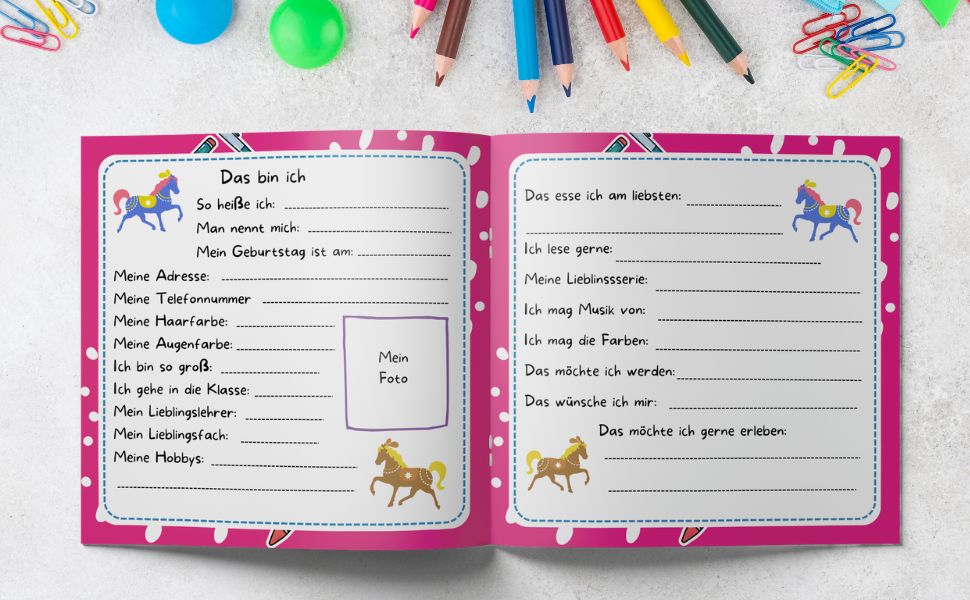 Das bin ich
So heiße ich:
Man nennt mich:
Mein Geburtstag ist am:
Meine Adresse:
Meine Telefonnummer
Meine Haarfarbe:
Meine Augenfarbe:
Ich bin so groß:
Ich gehe in die Klasse:
Mein Lieblingslehrer:
Mein Lieblingsfach:
Meine Hobbys:
Mein
Foto
Das esse ich am liebsten:
Ich lese gerne:
Meine Lieblinssserie:
Ich mag Musik von:
Ich mag die Farben:
Das möchte ich werden:
Das wünsche ich mir:
Das möchte ich gerne erleben: